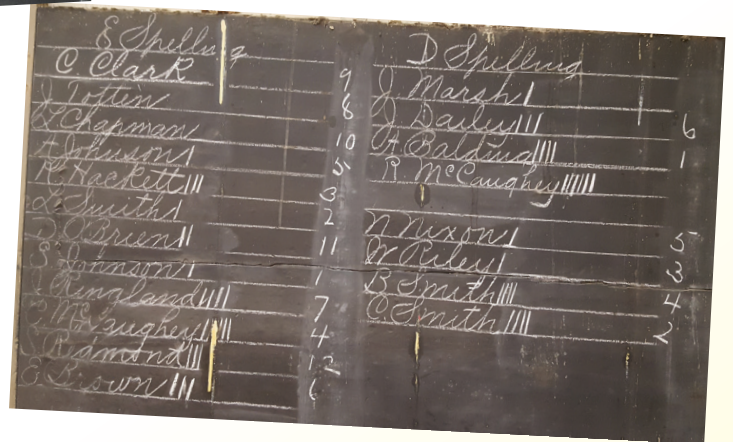 E Spelling
C Clark 9
J Totten 8
Chapman 10
Johnson | 5
R Hackett ||| 3
L Smith | 2
O'Brien || 11
S Johnson | 1
Ringland |||| 7
McCaughey 4
Edmond ||| 12
Brown ||| 6
D Spelling
J Marsh |
J Dailey ||| 6
A Balding |||| 1
R. McCaughey ||||||
N Nixon | 5
W Riley | 3
B Smith |||| 4
C. Smith |||| 2